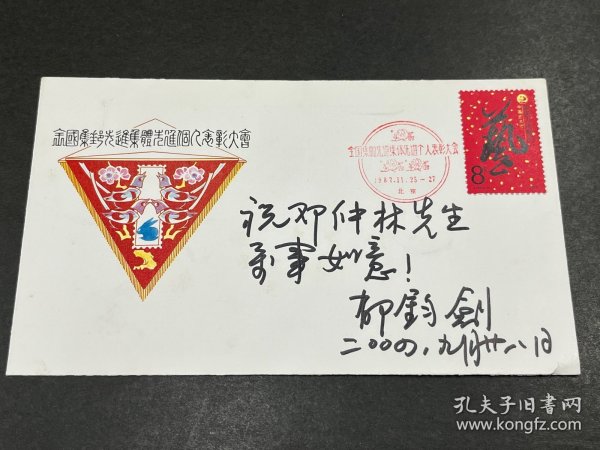 全國集郵先進集體先進個人表彰大會
全国集邮先进集体先进个人表彰大会
1987.11.25-27
北京
藝
8
祝邓仲林先生
万事如意！
郁钧剑
二〇〇〇，九月廿八日
孔夫子旧书网
www.kongfz.com